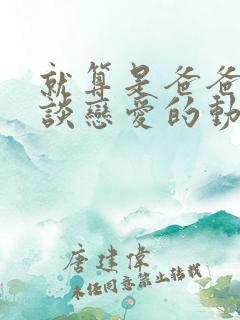 就算是爸爸
談戀愛的動
唐建偉
未經同意禁止轉載